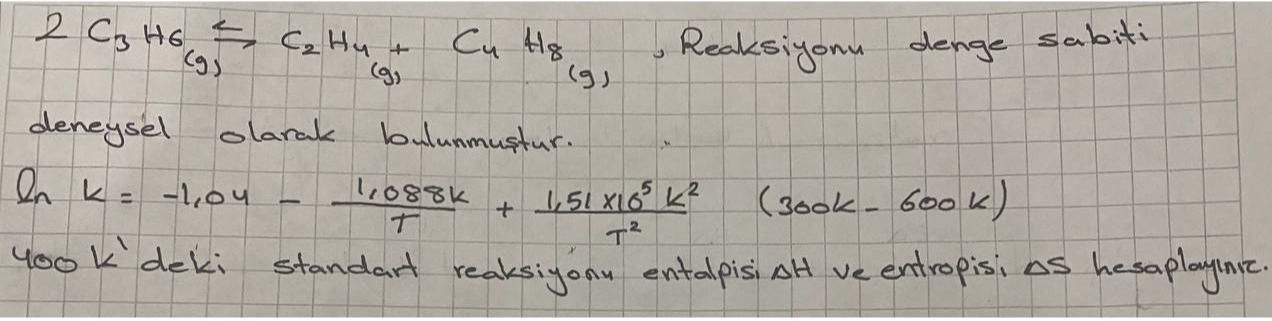 2 C₃H₆(g) ⇌ C₂H₄(g) + C₄H₈(g) , Reaksiyonu denge sabiti
deneysel olarak bulunmuştur.
ln K = -1,04 - 1,088k/T + 1,51x10⁵ K²/T² (300k - 600K)
400 K'deki standart reaksiyonu entalpisi ΔH ve entropisi ΔS hesaplayınız.